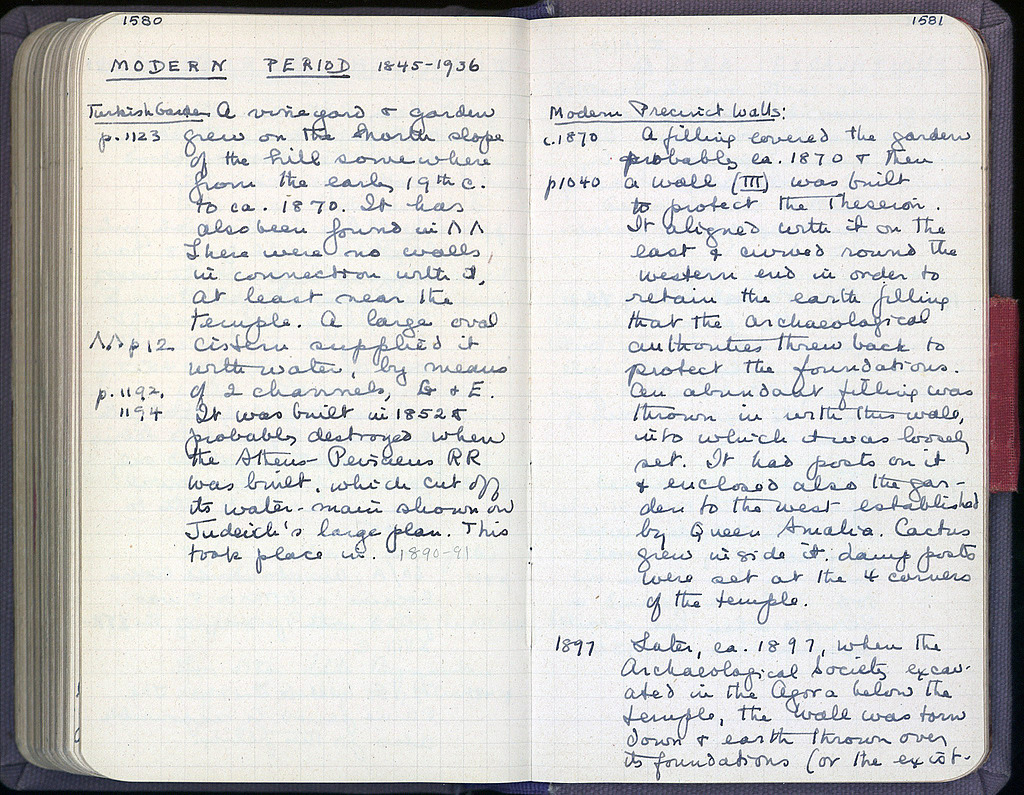 1580
MODERN PERIOD 1845-1936
Turkish Garden A vineyard & garden
p. 1123 grew on the North slope
of the hill somewhere
from the early 19th c.
to ca. 1870. It has
also been found in ΛΛ
There were no walls,
in connection with it,
at least near the
temple. A large oval
ΛΛ p 12 cistern supplied it
with water, by means
p. 1192, of 2 channels, & E.
1194 It was built in 1852 &
probably destroyed when
the Athens-Peiraeus RR
was built, which cut off
its water-main shown on
Judeich's large plan. This
took place in. 1890-91
1581
Modern Precinct Walls:
c.1870 A filling covered the garden
probably ca. 1870 & then
p1040 a wall (III) was built
to protect the Theseion.
It aligned with it on the
east & curved round the
western end in order to
retain the earth filling
that the archaeological
authorities threw back to
protect the foundations.
An abundant filling was
thrown in with this wall,
into which it was loosely
set. It had posts on it
& enclosed also the gar-
den to the west established
by Queen Amalia. Cactus
grew inside it. Lamp posts
were set at the 4 corners
of the temple.
1897 Later, ca. 1897, when the
Archaeological Society excav-
ated in the Agora below the
temple, the wall was torn
down & earth thrown over
its foundations (or the exist-